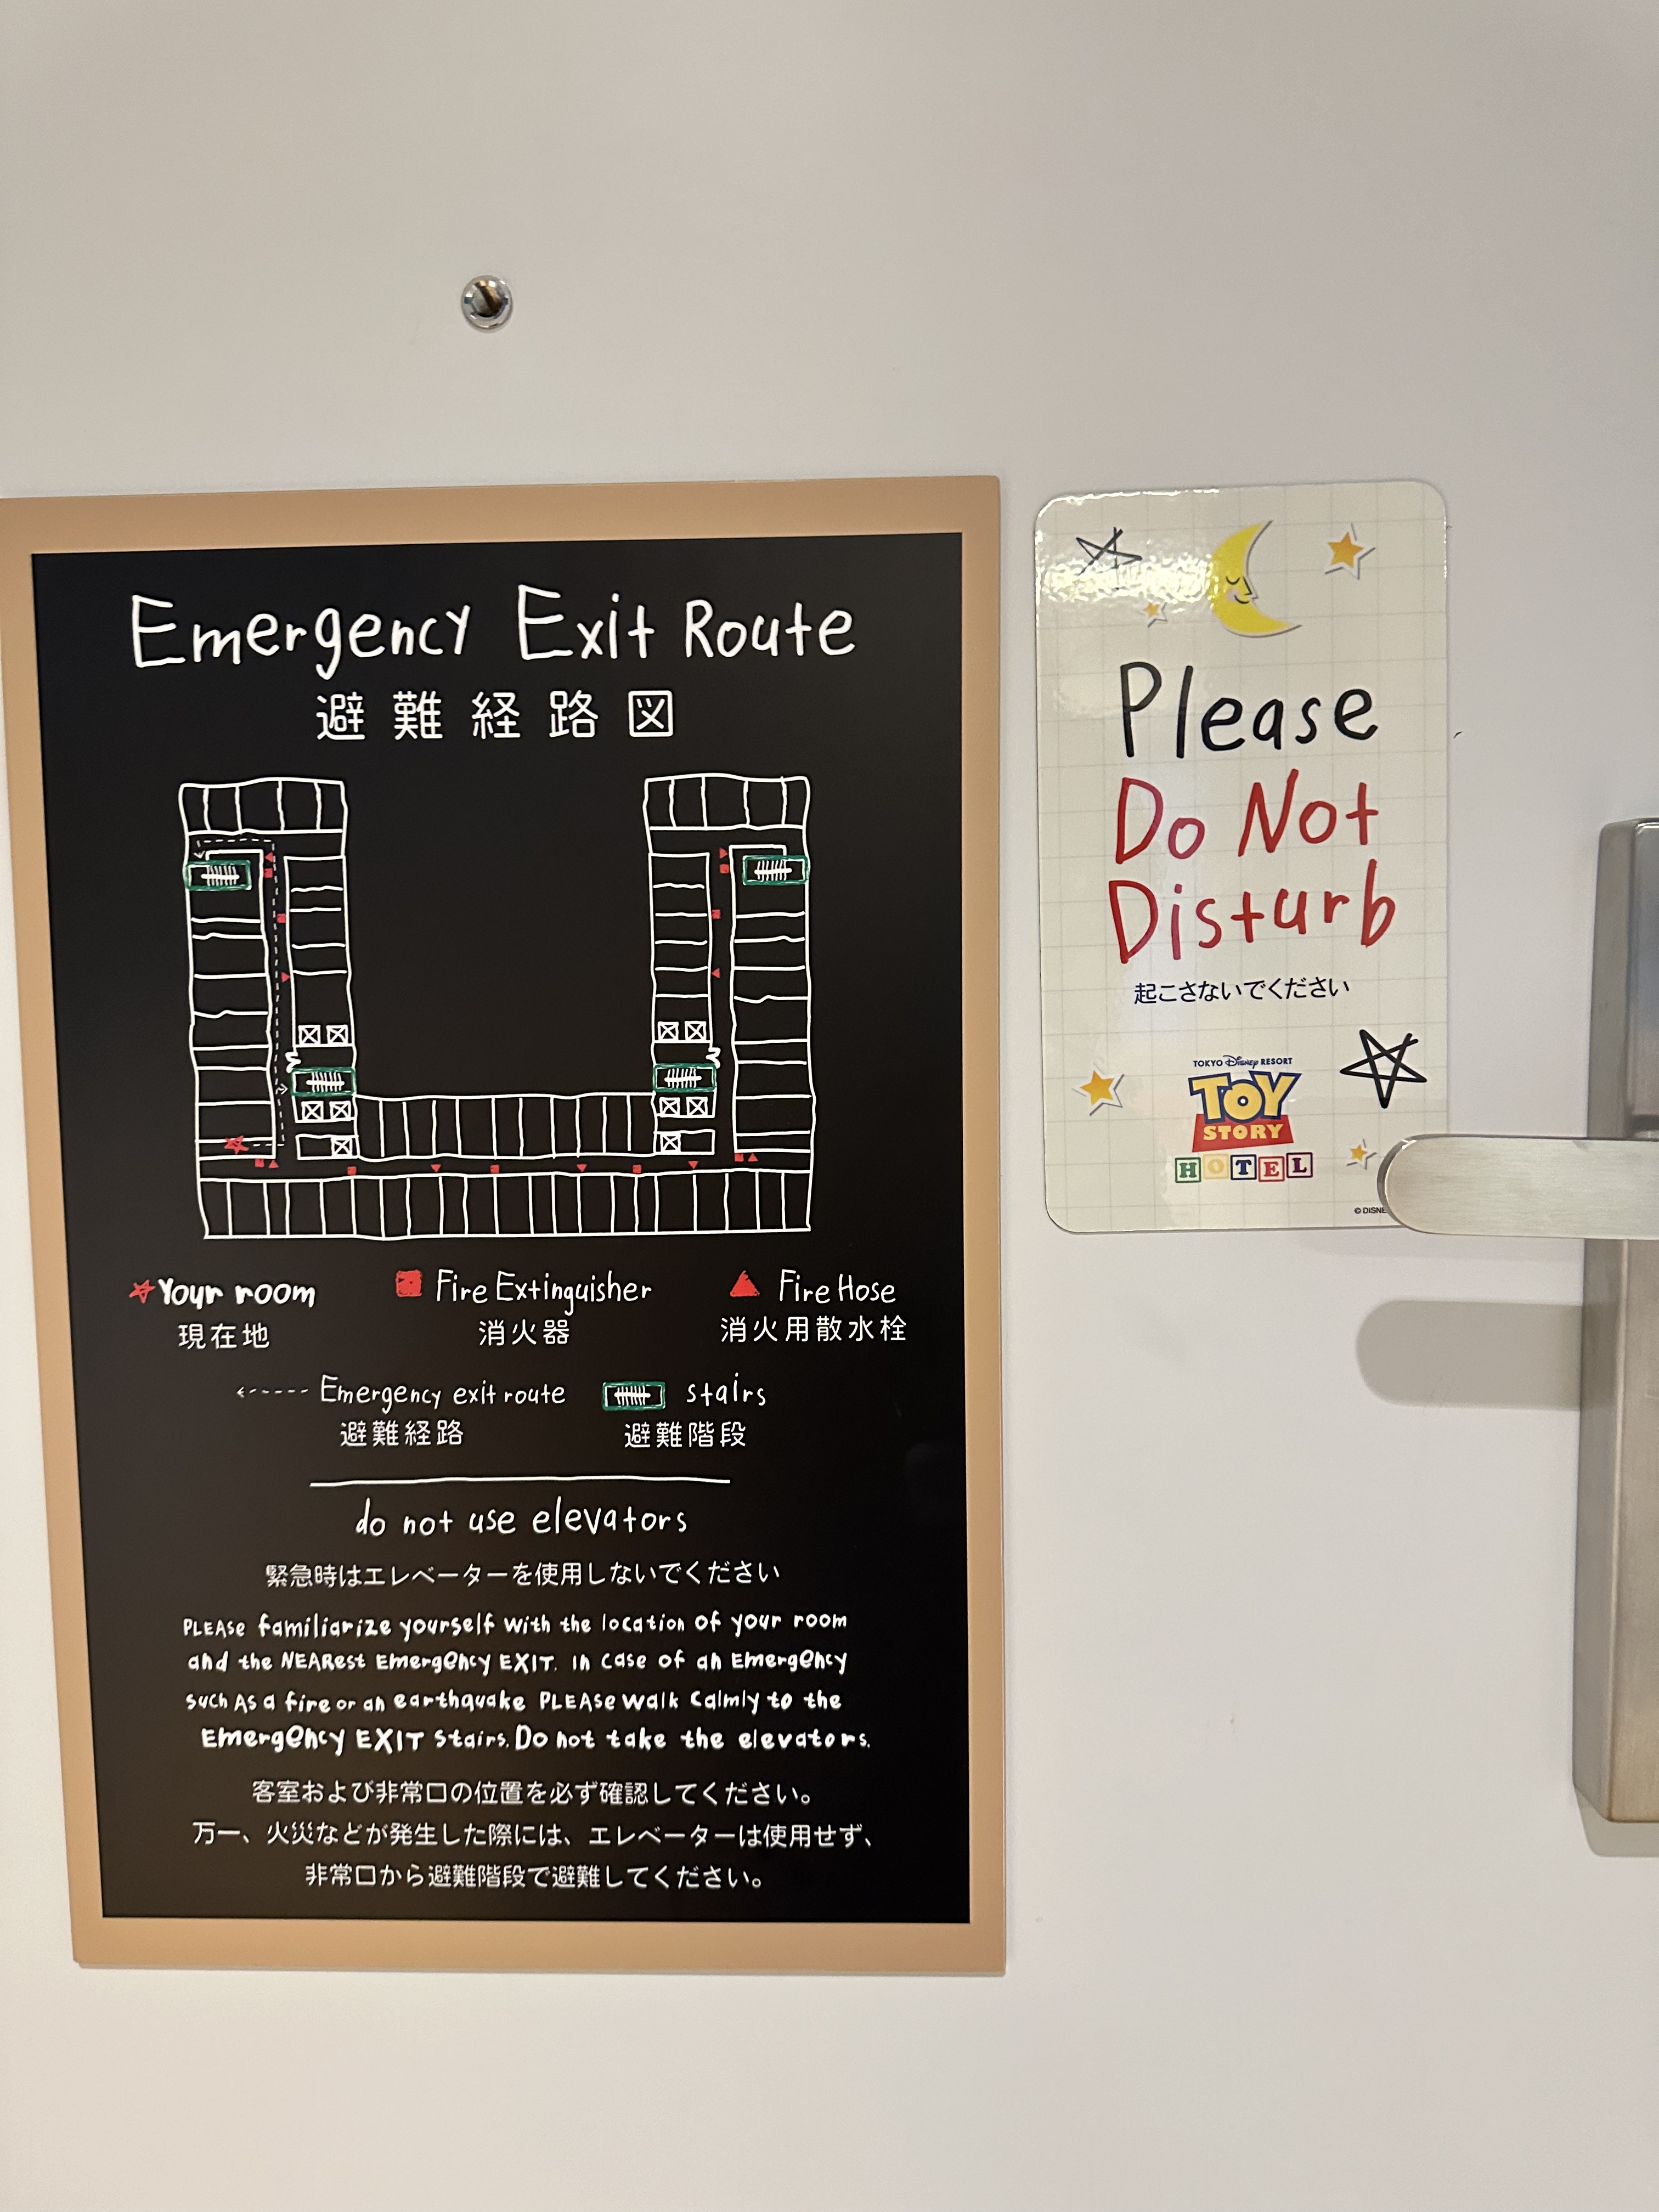 Emergency Exit Route
避難経路図
Your room
現在地
Fire Extinguisher
消火器
Fire Hose
消火用散水栓
Emergency exit route
避難経路
stairs
避難階段
do not use elevators
緊急時はエレベーターを使用しないでください
PLEASE familiarize yourself with the location of your room
and the NEARest EmergEncy EXIT. In case of an EmergEncy
such As a fire or an earthquake PLEASE walk calmly to the
EmergEncy EXIT stairs. Do not take the elevators.
客室および非常口の位置を必ず確認してください。
万一、火災などが発生した際には、エレベーターは使用せず、
非常口から避難階段で避難してください。
Please
Do Not
Disturb
起こさないでください
TOKYO Disney RESORT
TOY
STORY
HOTEL